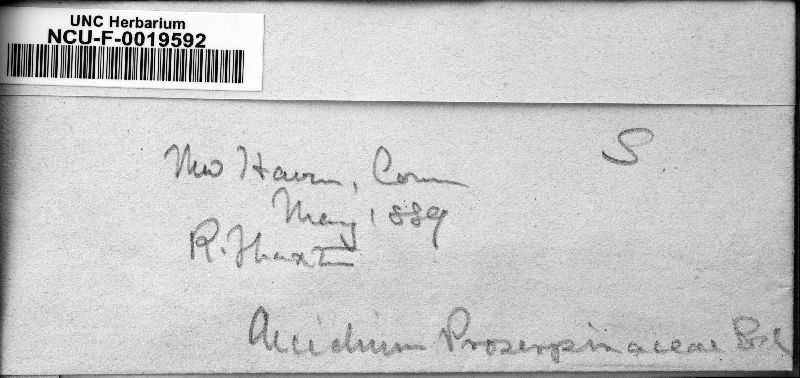 UNC Herbarium
NCU-F-0019592
S
New Haven, Conn
May 1889
R. Thaxter
Aecidium Proserpinaceae